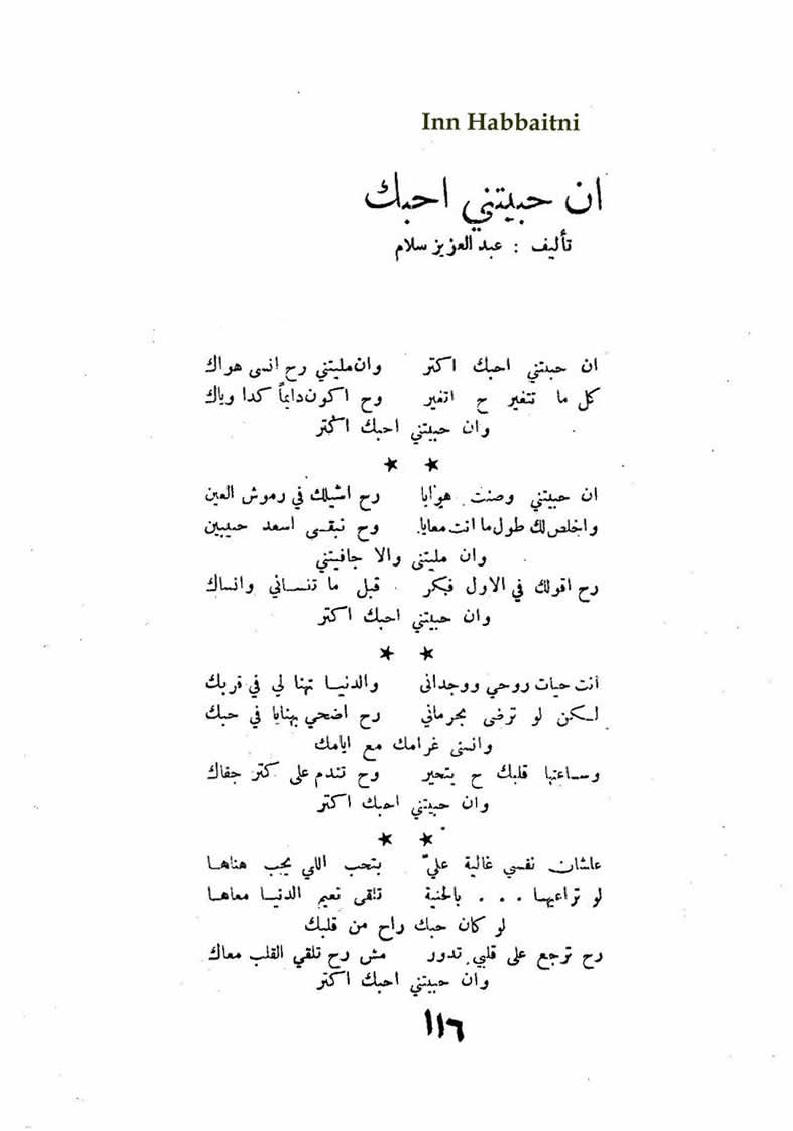 Inn Habbaitni
ان حبيتني احبك
تأليف : عبد العزيز سلام
ان حبيتني احبك اكتر وان مليتني رح انسى هواك
كل ما تتغير ح اتغير وح اكون دايماً كدا وياك
وان حبيتني احبك اكتر
★ ★
ان حبيتني وصنت هوايا رح اشيلك في رموش العين
واخلص لك طول ما انت معايا. وح نبقى اسعد حبيبين
وان مليتني والا جافيتني
رح اقولك في الاول فبكر قبل ما تنساني وانساك
وان حبيتني احبك اكتر
★ ★
انت حيات روحي ووجداني والدنيا تهنا لي في قربك
لكن لو ترضى بحرماني رح اضحي بهنايا في حبك
وانسى غرامك مع ايامك
وساعتها قلبك ح يتحير وح تندم على كتر جفاك
وان حبيتني احبك اكتر
★ ★
علشان نفسي غالية عليّ بتحب اللي يجب هناها
لو تراعيها . . . بالحنية تلقى نعيم الدنيا معاها
لو كان حبك راح من قلبك
رح ترجع على قلبي تدور مش رح تلقي القلب معاك
وان حبيتني احبك اكتر
١١٦